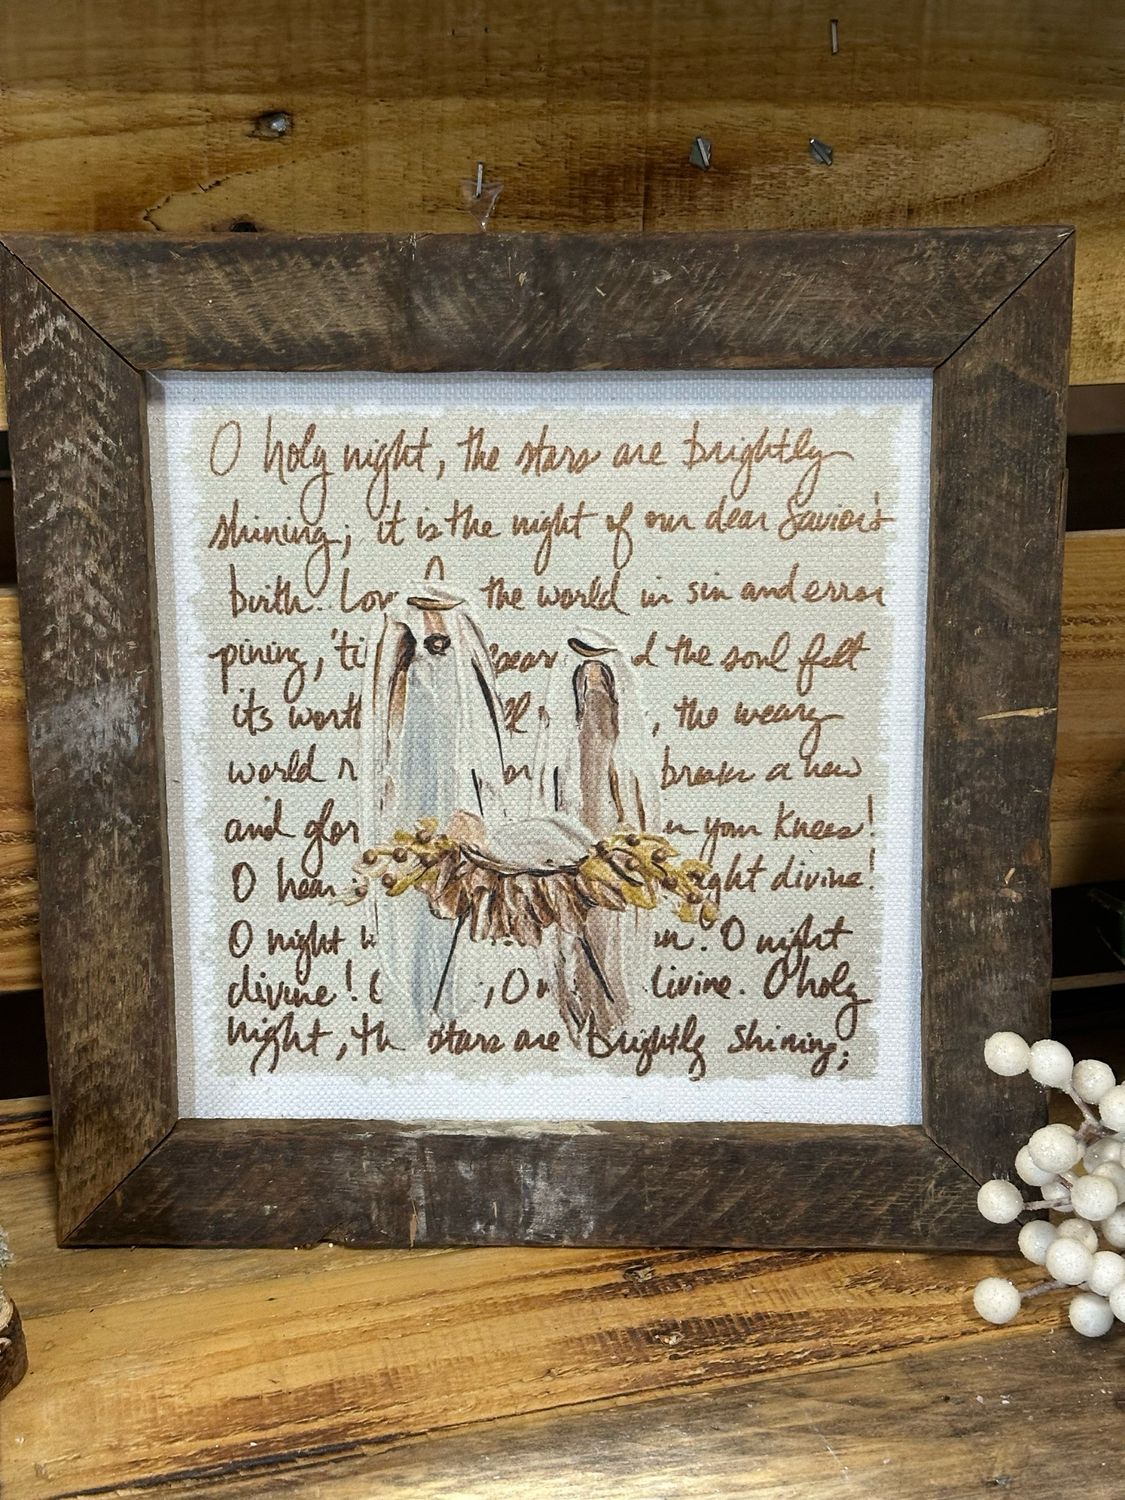 O holy night, the stars are brightly
shining; it is the night of our dear Savior's
birth. the world in sin and error
pining, d the soul felt
its the weary
world a new
and n your knees!
O ight divine!
O night O night
divine! O holy
night, th stars are brightly shining;